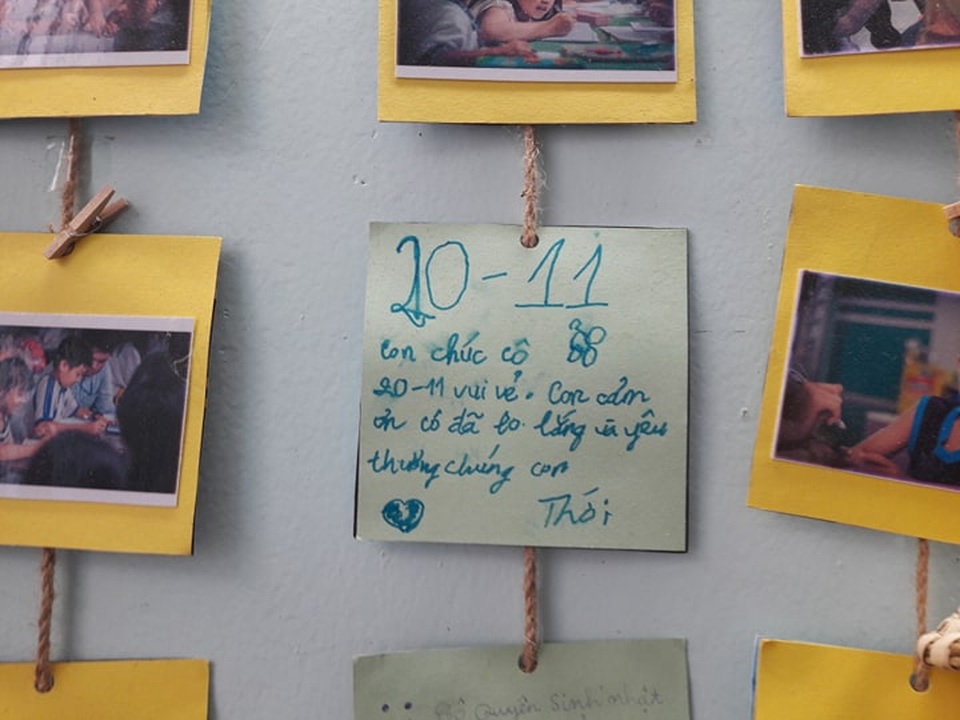 20-11
con chúc cô
20-11 vui vẻ. Con cảm
ơn cô đã lo lắng và yêu
thương chúng con
Thới
Quyên Sinh nhật